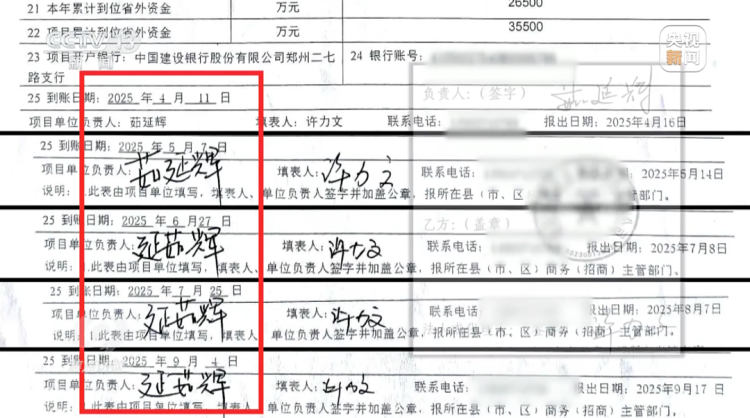 21 本年累计到位省外资金 万元 26500
22 项目累计到位省外资金 万元 35500
CCTV-13
新闻
央视
新闻
23 项目开户银行：中国建设银行股份有限公司郑州二七路支行 24 银行账号：
25 到账日期：2025 年 4 月 11 日
负责人：（签字） 茹延辉
项目单位负责人：茹延辉 填表人：许力文 联系电话： 报出日期：2025年4月16日
25 到账日期：2025 年 5 月 7 日
项目单位负责人：茹延辉 填表人：许力文 联系电话： 2025年5月14日
说明：1.此表由项目单位填写，填表人、单位负责人签字并加盖公章，报所在县（市、区）商务（招商）主管部门。
25 到账日期：2025 年 6 月 27 日
乙方：（盖章）
项目单位负责人：延茹辉 填表人：许力文 联系电话： 报出日期：2025年7月8日
说明：1.此表由项目单位填写，填表人、单位负责人签字并加盖公章，报所在县（市、区）商务（招商）主管部门。
25 到账日期：2025 年 7 月 25 日
项目单位负责人：延茹辉 填表人：许力文 联系电话： 报出日期：2025年8月7日
说明：1.此表由项目单位填写，填表人、单位负责人签字并加盖公章，报所在县（市、区）商务（招商）主管部门。
25 到账日期：2025 年 9 月 4 日
项目单位负责人：延茹辉 填表人：许力文 联系电话： 报出日期：2025年9月17日
说明：1.此表由项目单位填写，填表人、单位负责人签字并加盖公章，报所在县（市、区）商务（招商）主管部门。